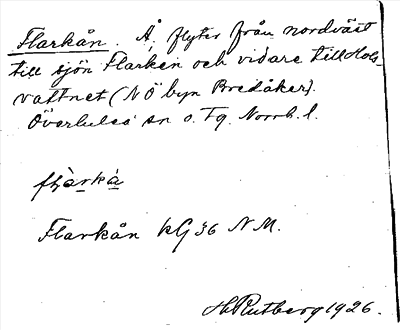 Flarkån. Å, flyter från nordväst
till sjön Flarken och vidare till Hols-
vattnet (NÖ byn Bredåker).
Överluleå sn o. Tg. Norrb. l.
Flarkån kG 36 N M.
H. Rutberg 1926.